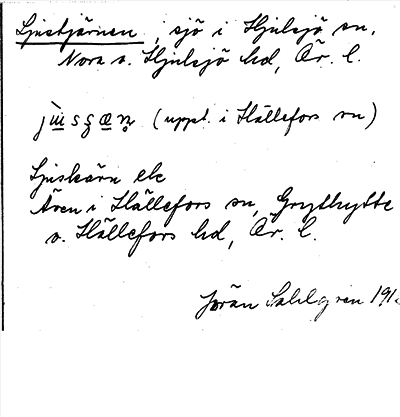 Ljustjärnen, sjö i Hjulsjö sn,
Nora o. Hjulsjö hd, Ör. l.
(uppt. i Hällefors sn)
Ljuskärn ek
Även i Hällefors sn, Grythytte
o. Hällefors hd, Ör. l.
Jöran Sahlgren 191